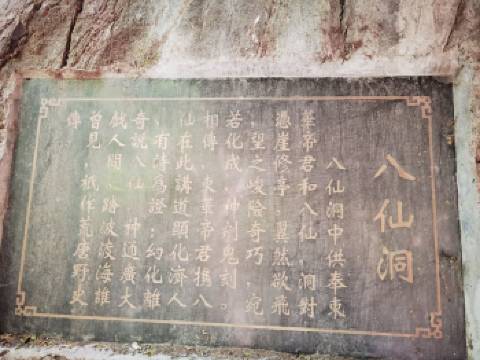 八仙洞
八仙洞中供奉東
華帝君和八仙,洞對
憑崖修亭,翼然欲飛
,望之峻險奇巧,宛
若化成,神剜鬼刻。
相傳,東華帝君携八
仙在此講道顯化濟人
,有詩爲證:幻化離
奇説八仙 神通廣大
戲人間 踏波渡海誰
曾見,祇作荒唐野史
傳